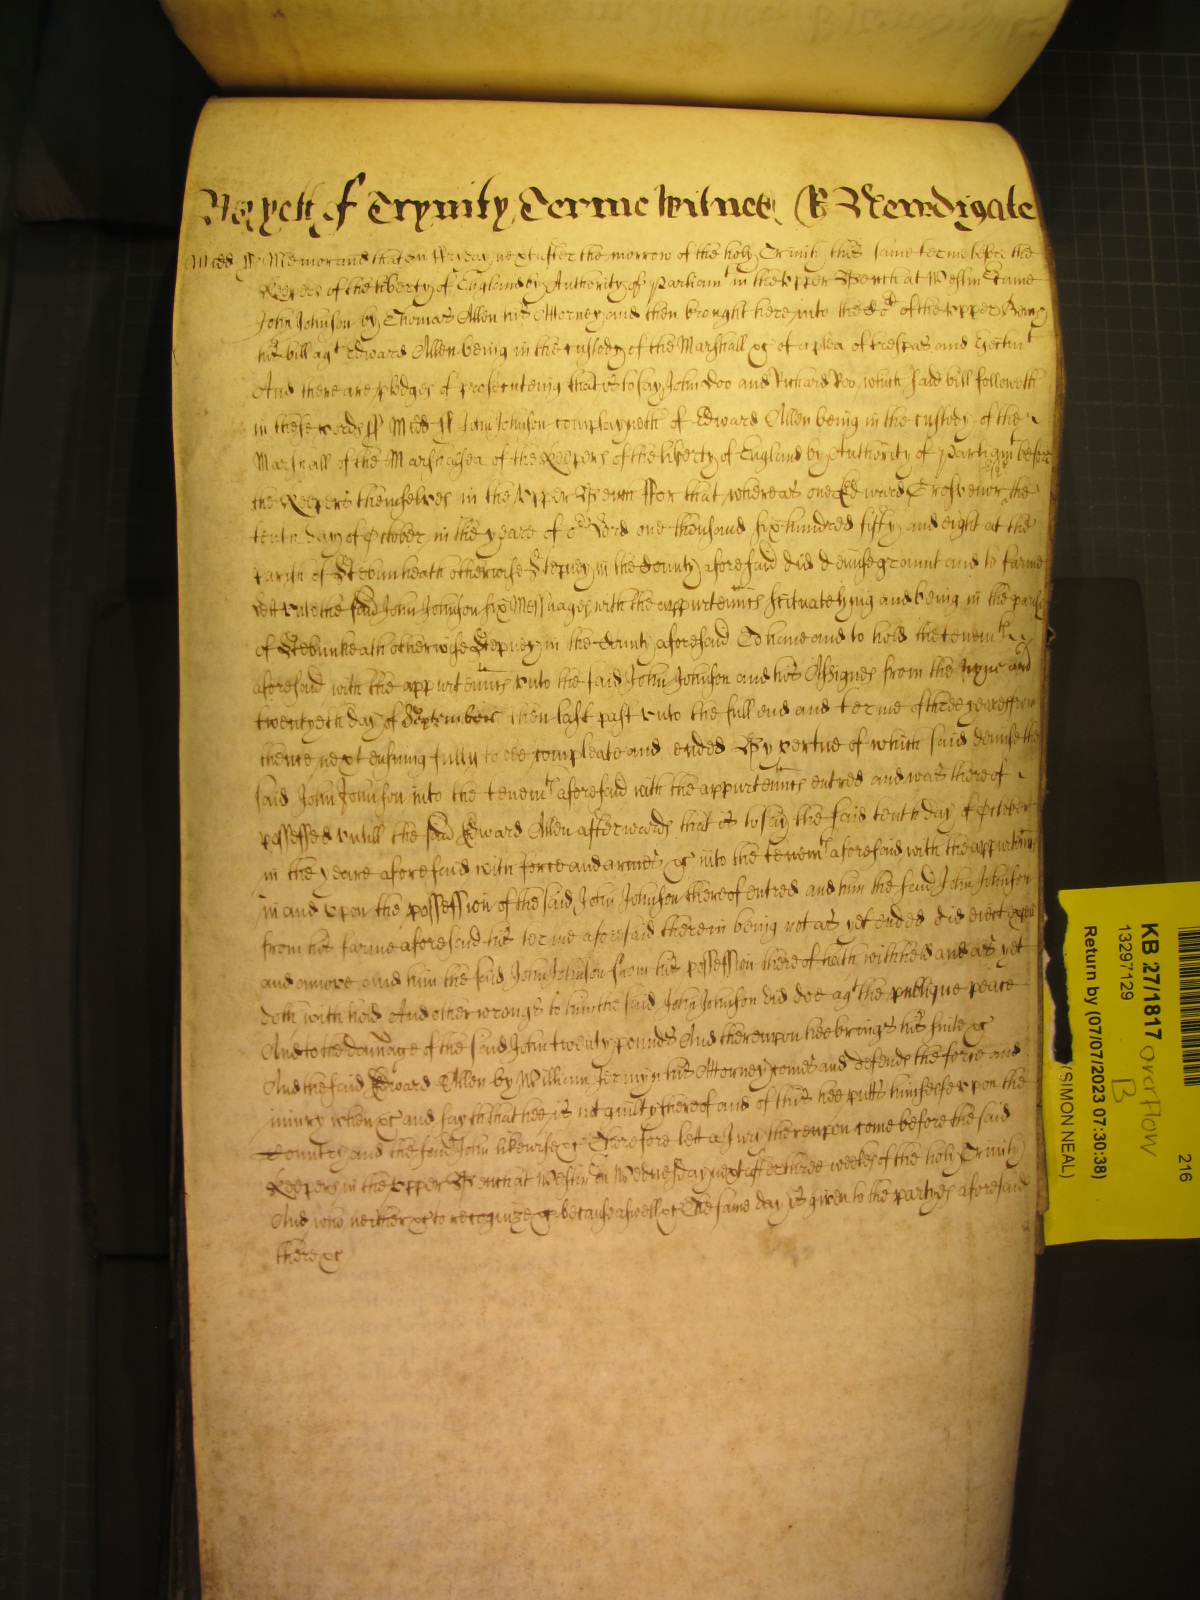 Yet of Trynity Terme Witnes R Newdigate
Midd ss Memorand that on ffriday next after the morrow of the holy Trinity this same terme before the
Keepers of the liberty of England by Authority of Parliamt in the Upper Bench at Westm Came
John Johnson by Thomas Allen his Attorney and then brought here into the Co:rt of the Upper Bench
his bill agt Edward Allen being in the custody of the Marshall &c of a plea of trespas and Ejectmt
And there are pledges of prosecuteing that is to say John Doo and Richard Roo, which said bill followeth
in these words ss Midd ss John Johnson complayneth of Edward Allen being in the custody of the
Marshall of the Marshalsea of the Keepers of the liberty of England by Authority of Parliamt before
the Keepers themselves in the Upper Bench ffor that whereas one Edward Grosvenor the
tenth day of October in the yeare of or Lord one thousand six hundred fifty and eight at the
parish of Stebunheath otherwise Stepney in the County aforesaid did demise grount and to farme
lett unto the said John Johnson six Messuages with the appurtenncs scituate lying and being in the parish
of Stebunheath otherwise Stepney in the County aforesaid To have and to hold the tenemts
aforesaid with the appurtenncs unto the said John Johnson and his Assignes from the nyne and
twentyeth day of September then last past unto the full end and terme of three yeares from
thence next ensuing fully to bee compleate and ended By vertue of which said demise the
said John Johnson into the tenemts aforesaid with the appurtenncs entred and was thereof
possessed untill the said Edward Allen afterwards that is to say the said tenth day of October
in the yeare aforesaid with force and armes &c into the tenemts aforesaid with the appurtenncs
in and upon the possession of the said John Johnson thereof entred and him the said John Johnson
from his farme aforesaid his terme aforesaid therein being not as yet ended did eject expell
and amove and him the said John Johnson from his possession thereof hath withheld and as yet
doth with hold And other wrongs to him the said John Johnson did doe agt the publique peace
And to the damage of the said John twenty pounds And thereupon hee brings his suite &c
And the said Edward Allen by William Jermyn his Attorney comes and defends the force and
injury when &c and sayth that hee is not guilty thereof and of this hee putts himselfe upon the
Country and the said John likewise &c Therefore lett a Jury thereupon come before the said
Keepers in the Upper Bench at Westm on Wednesday next after three weekes of the holy Trinity
And who neither &c to recognize &c because aswell &c The same day is given to the partyes aforesaid
there &c
KB 27/1817 overflow
13297129 B
Return by (07/07/2023 07:30:38)
(SIMON NEAL)
216